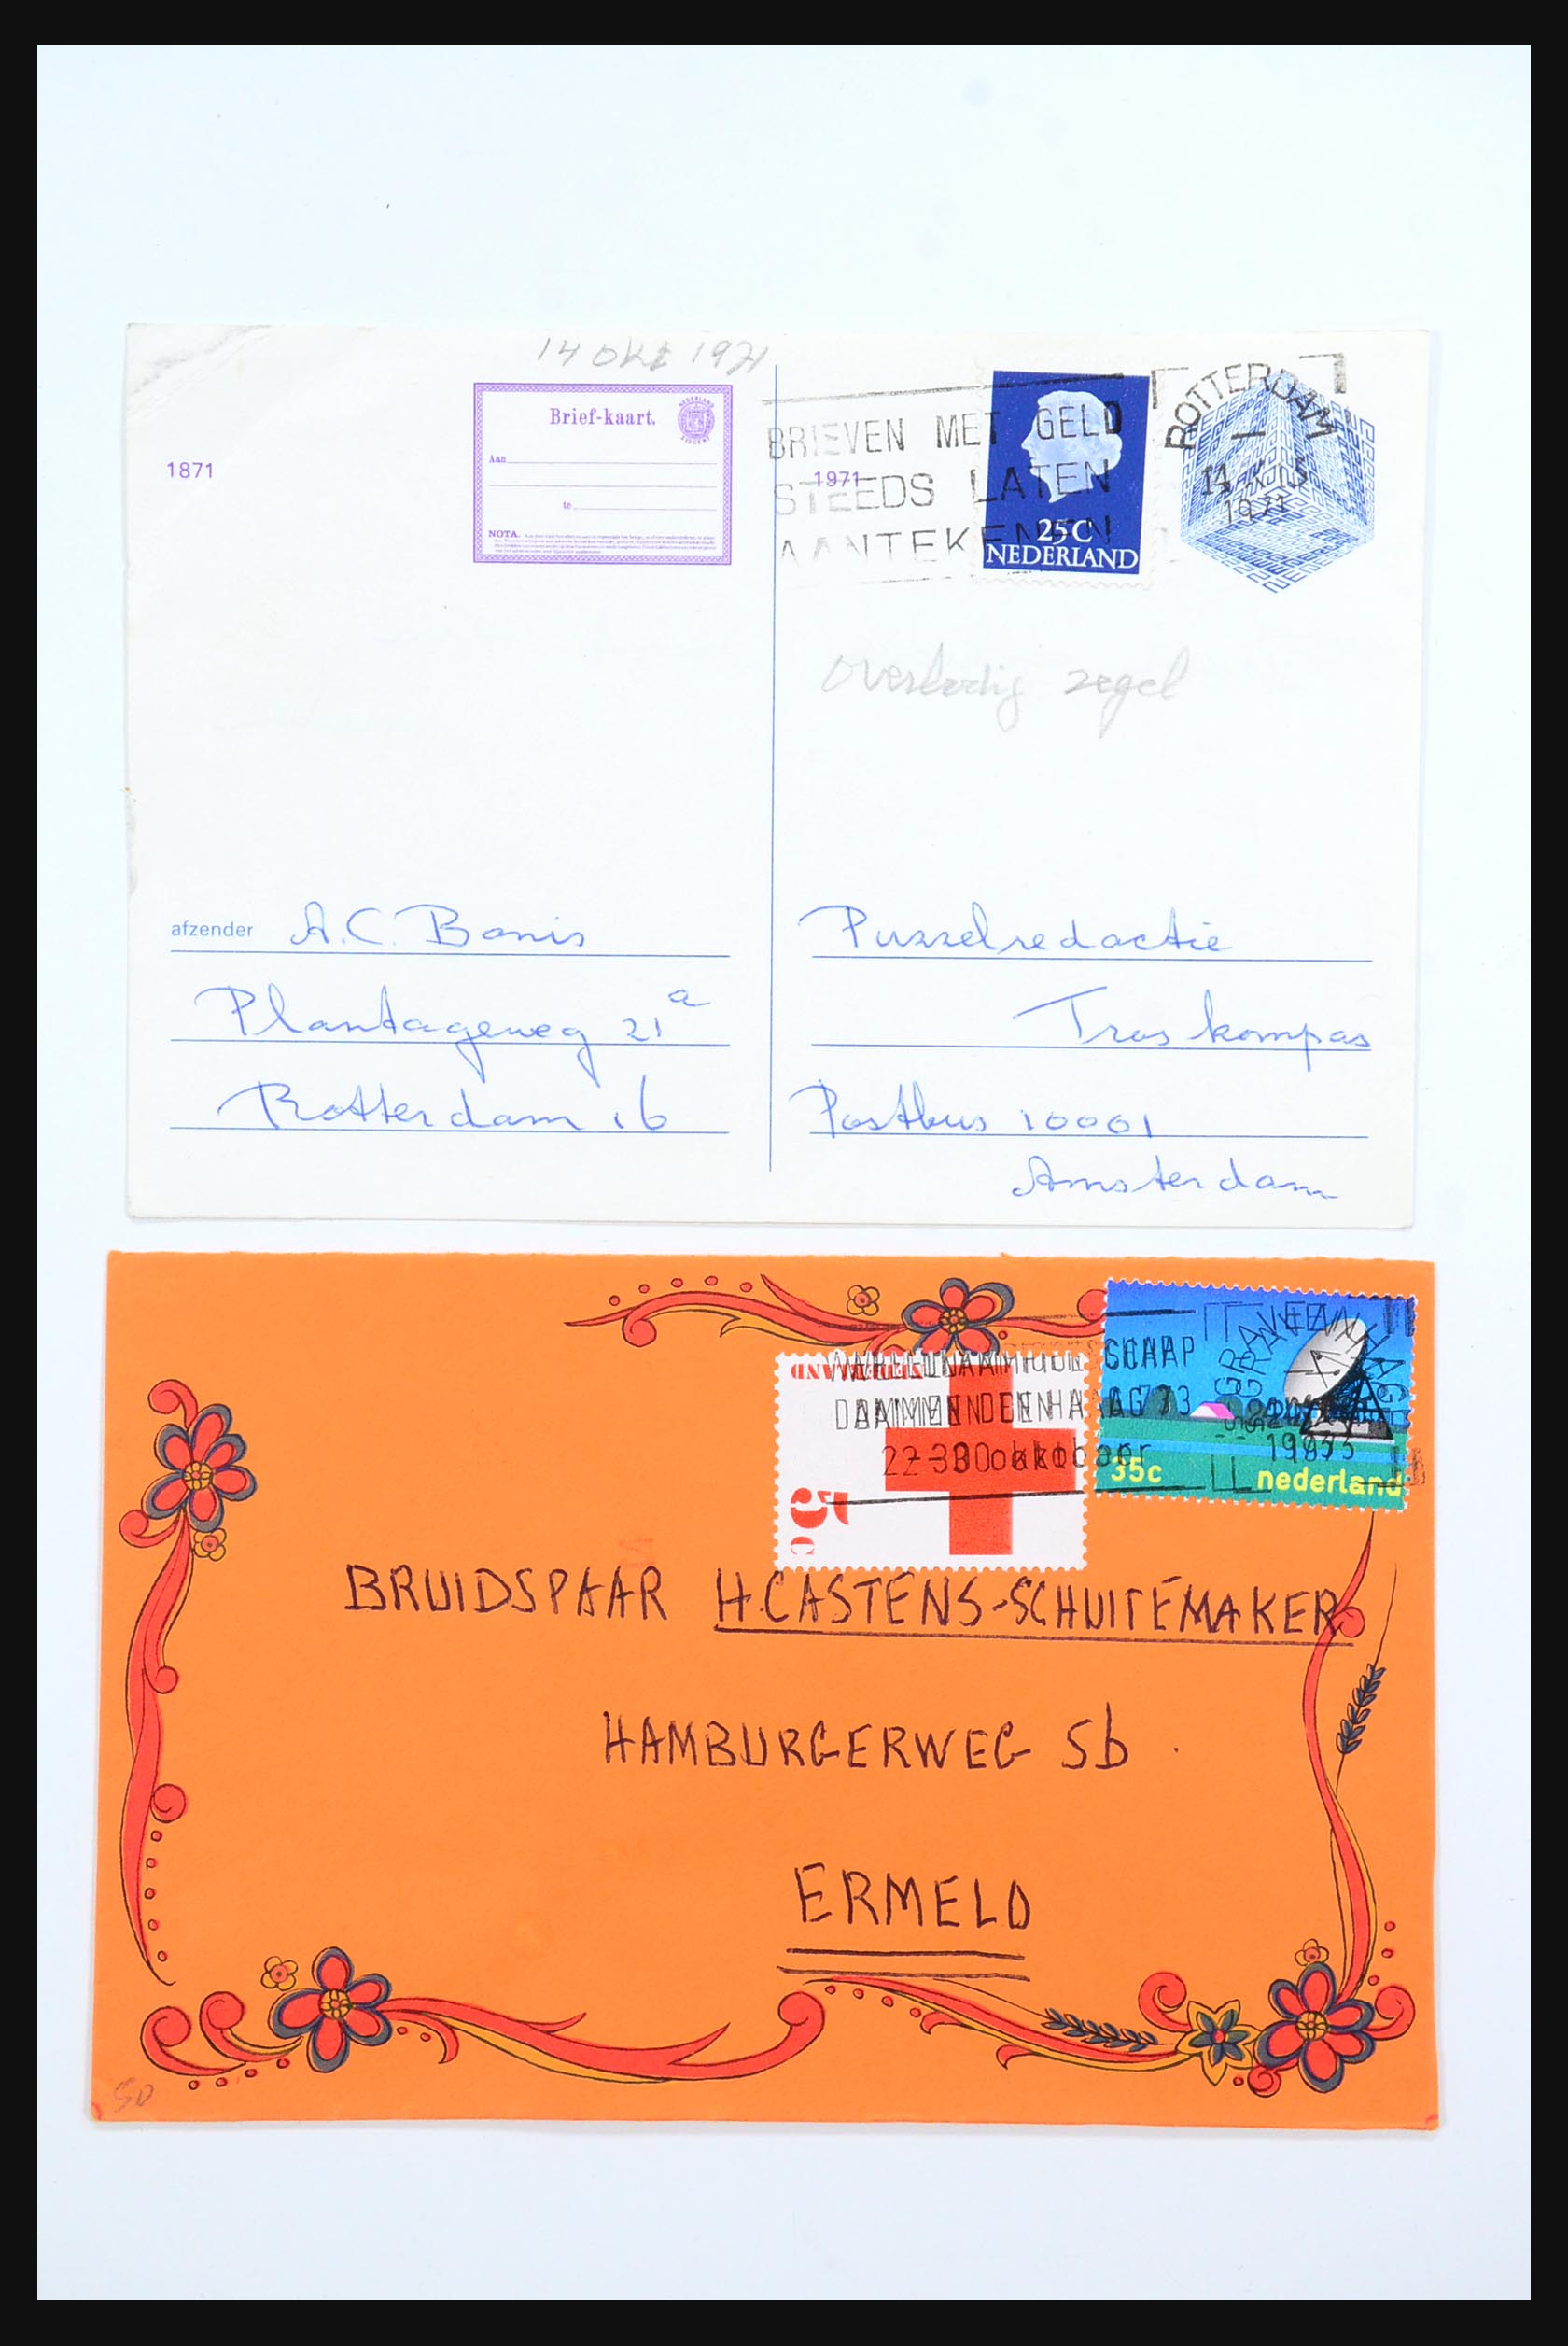 14 okt 1971
Brief-kaart.
NEDERLAND
Aan
te
NOTA.
1871
1971
BRIEVEN MET GELD
STEEDS LATEN
AANTEKENEN
25C
NEDERLAND
ROTTERDAM
1971
overbodig zegel
afzender A.C. Banis
Plantageweg 21a
Rotterdam 16
Puzzelredactie
Tros kompas
Postbus 10001
Amsterdam
NEDERLAND
5c
35c nederland
22-30 oktober
1973
BRUIDSPAAR H.CASTENS-SCHUITEMAKER
HAMBURGERWEG 5b.
ERMELO
50